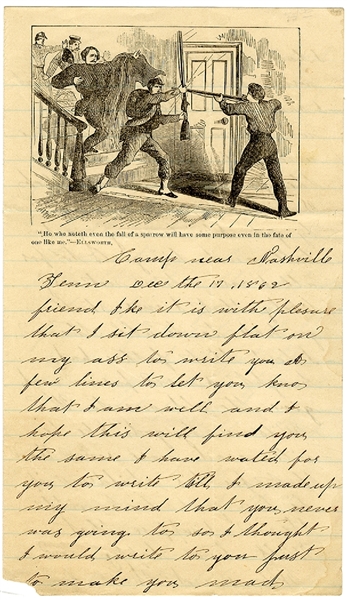 "He who noteth even the fall of a sparrow will have some purpose even in the fate of
one like me."—ELLSWORTH.
Camp near Nashville
Tenn Dec the 17. 1862
friend Ike it is with plesure
that I sit down flat on
my ass to write you a
few lines to let you know
that I am well and I
hope this will find you
the same I have wated for
you to write till I made up
my mind that you never
was going to so I thought
I would write to you just
to make you mad